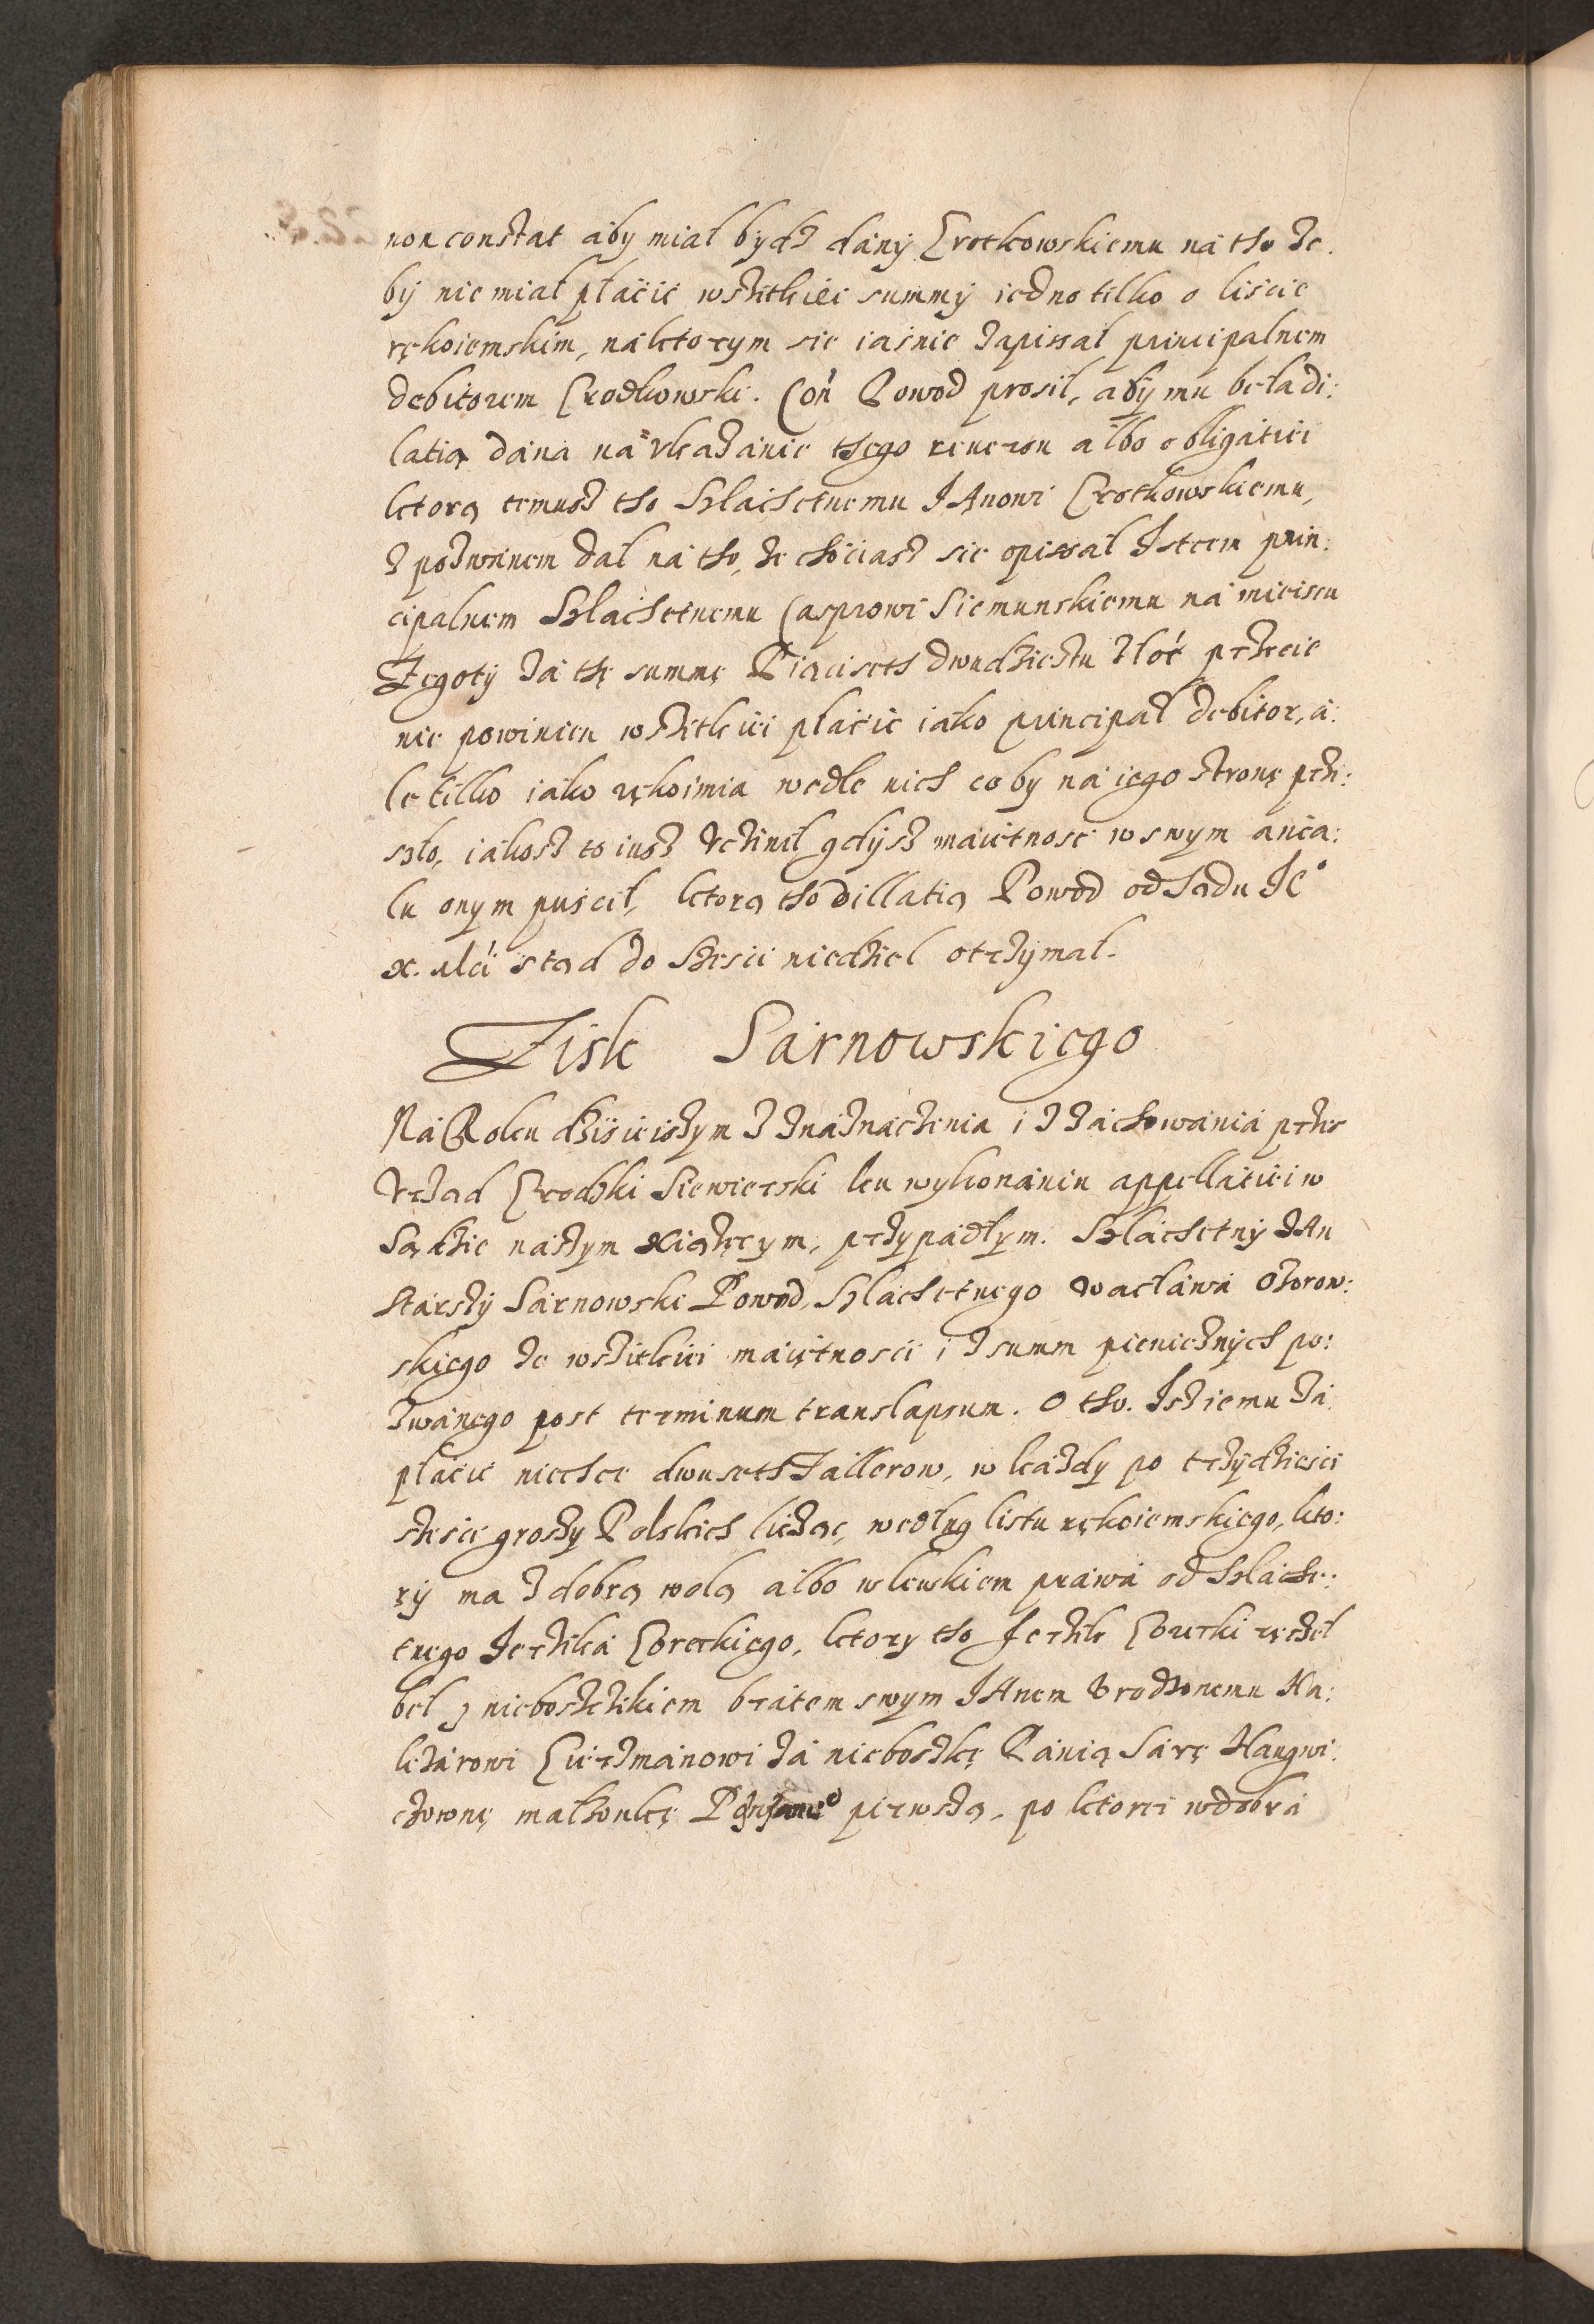 non constat aby miał bydz dany Crotkowskiemu na tho ze:
by nie miał płacic wszitkiei summy iedno tilko o liscie
rękoiemskim, na ktorym sie iasnie zapissal principalnem
debitorem Crodkowski. Con Powod prosił, aby mu beła di:
latią dana na vkazanie thego reuerou albo obligatiei
ktorą temusz tho Szlachetnemu JAnowi Crotkowskiemu,
z pozwanem dał na tho, ze chociasz sie opissal Istcem prin:
cipalnem Szlachetnemu Casprowi Siemunskiemu na mieiscu
Zegoty za thę summę Piąciseth dwudziestu złoć przecie
nie powinien wszitkiei płacic iako principał debitor, a:
le tilko iako rękoimia wedle nich co by na iego stronę przi:
szło, iakosz to iusz vczinił gdysz maiętnosc w swym ancia:
lu onym puscił, ktorą tho dillatią Powod od Sądu Je°
x. Mci stąd do szesci niedziel otrzymał.
Zisk Sarnowskiego
Na Roku dzisieiszym z znaznaczenia i z zachowania przez
Vrząd Crodzki Siewierski ku wykonaniu appellatiei w
Sądzie naszym Xiążęcym, przypadłym. Szlachetny JAn
Starszy Sarnowski Powod, Szlachetnego Wacława Ozorow:
skiego ze wszitkiei maiętnosci i z summ pienieznych po:
zwanego post terminum translapsum. O tho. Isz iemu za:
płacic niechce dwuseth Tallerow, w kazdy po trzydziesci
szesc groszy Polskich licząc, według listu rękoiemskiego, kto:
ry ma z dobrą wolą albo wlewkiem prawa od Szlache:
tnego Jerzika Coreckiego, ktory tho Jerzik Corecki ręczel
beł z nieboszczikiem bratem swym JAnem Vrodzonemu Ka:
liczarowi Cierzmanowi za nieboszkę Panią Sarę Haugwi:
czownę małżonkę pierwszą, po ktorei w dobra